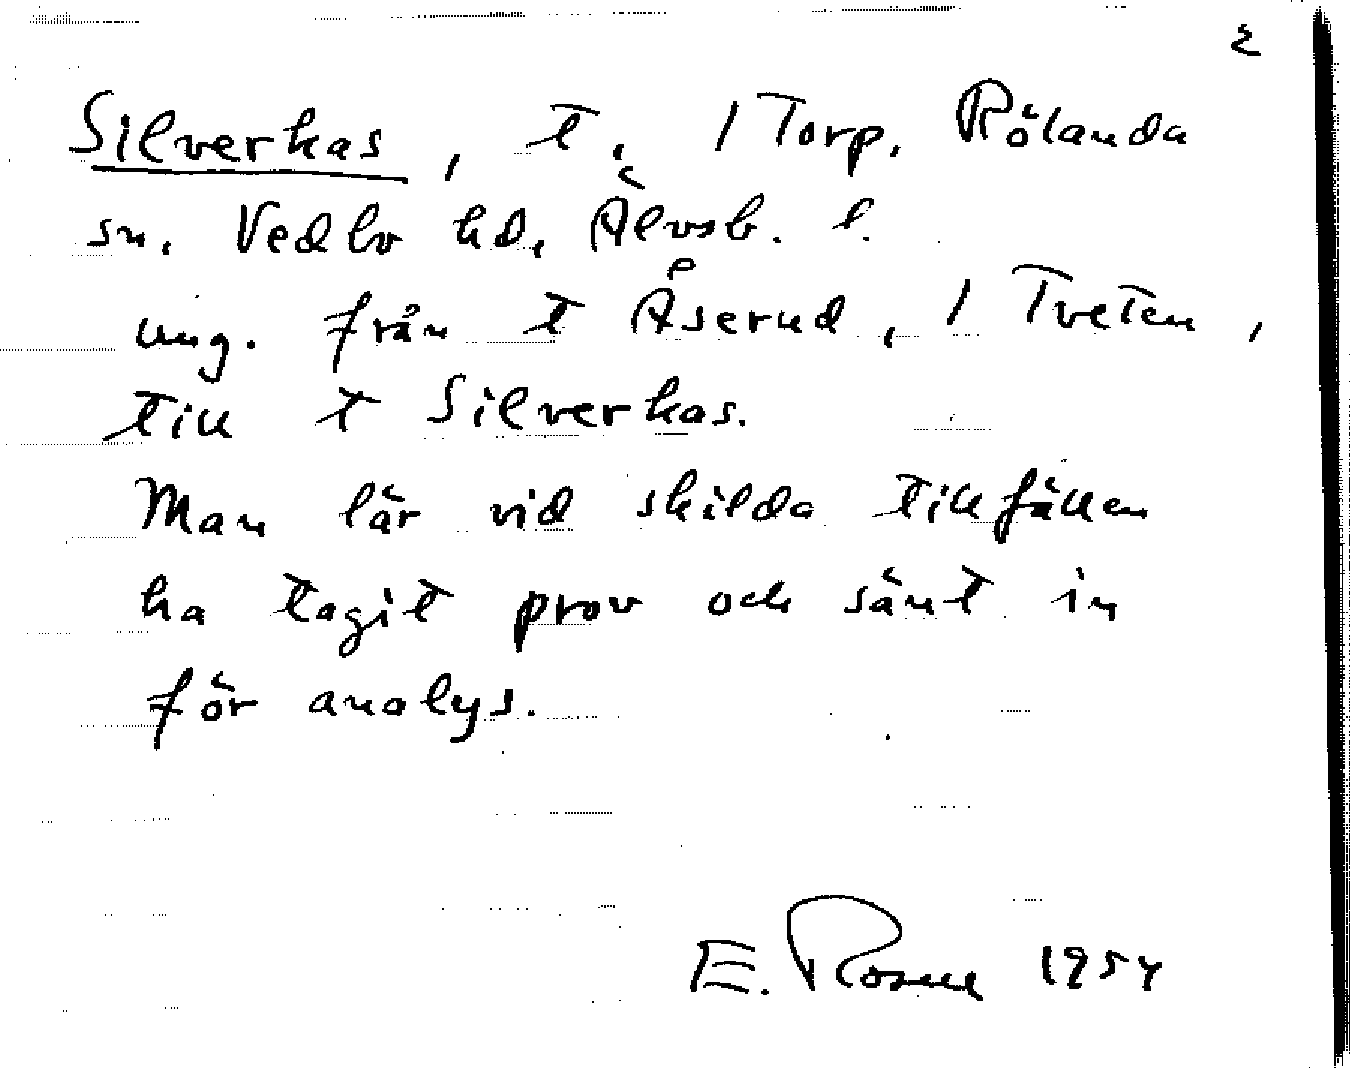 2
Silverkas, t. / Torp. Rölanda
sn. Vedbo hd, Älvsb. l.
ung. från t Åserud, / Tveten,
till t Silverkas.
Man lär vid skilda tillfällen
ha tagit prov och sänt in
för analys.
E. Rosell 1954